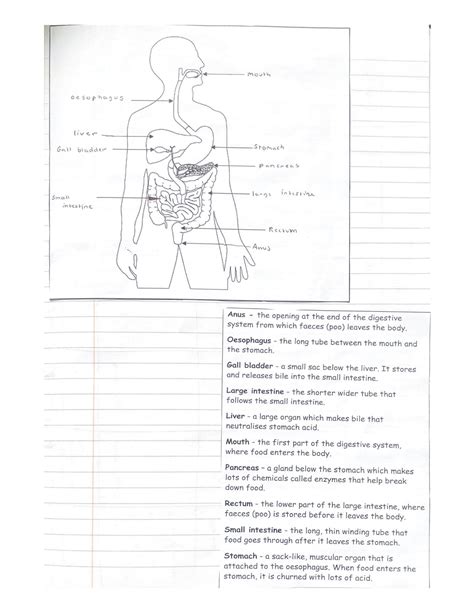 mouth
oesophagus
liver
Gall bladder
Stomach
pancreas
large intestine
Small
intestine
Rectum
Anus
Anus - the opening at the end of the digestive
system from which faeces (poo) leaves the body.
Oesophagus - the long tube between the mouth and
the stomach.
Gall bladder - a small sac below the liver. It stores
and releases bile into the small intestine.
Large intestine - the shorter wider tube that
follows the small intestine.
Liver - a large organ which makes bile that
neutralises stomach acid.
Mouth - the first part of the digestive system,
where food enters the body.
Pancreas - a gland below the stomach which makes
lots of chemicals called enzymes that help break
down food.
Rectum - the lower part of the large intestine, where
faeces (poo) is stored before it leaves the body.
Small intestine - the long, thin winding tube that
food goes through after it leaves the stomach.
Stomach - a sack-like, muscular organ that is
attached to the oesophagus. When food enters the
stomach, it is churned with lots of acid.